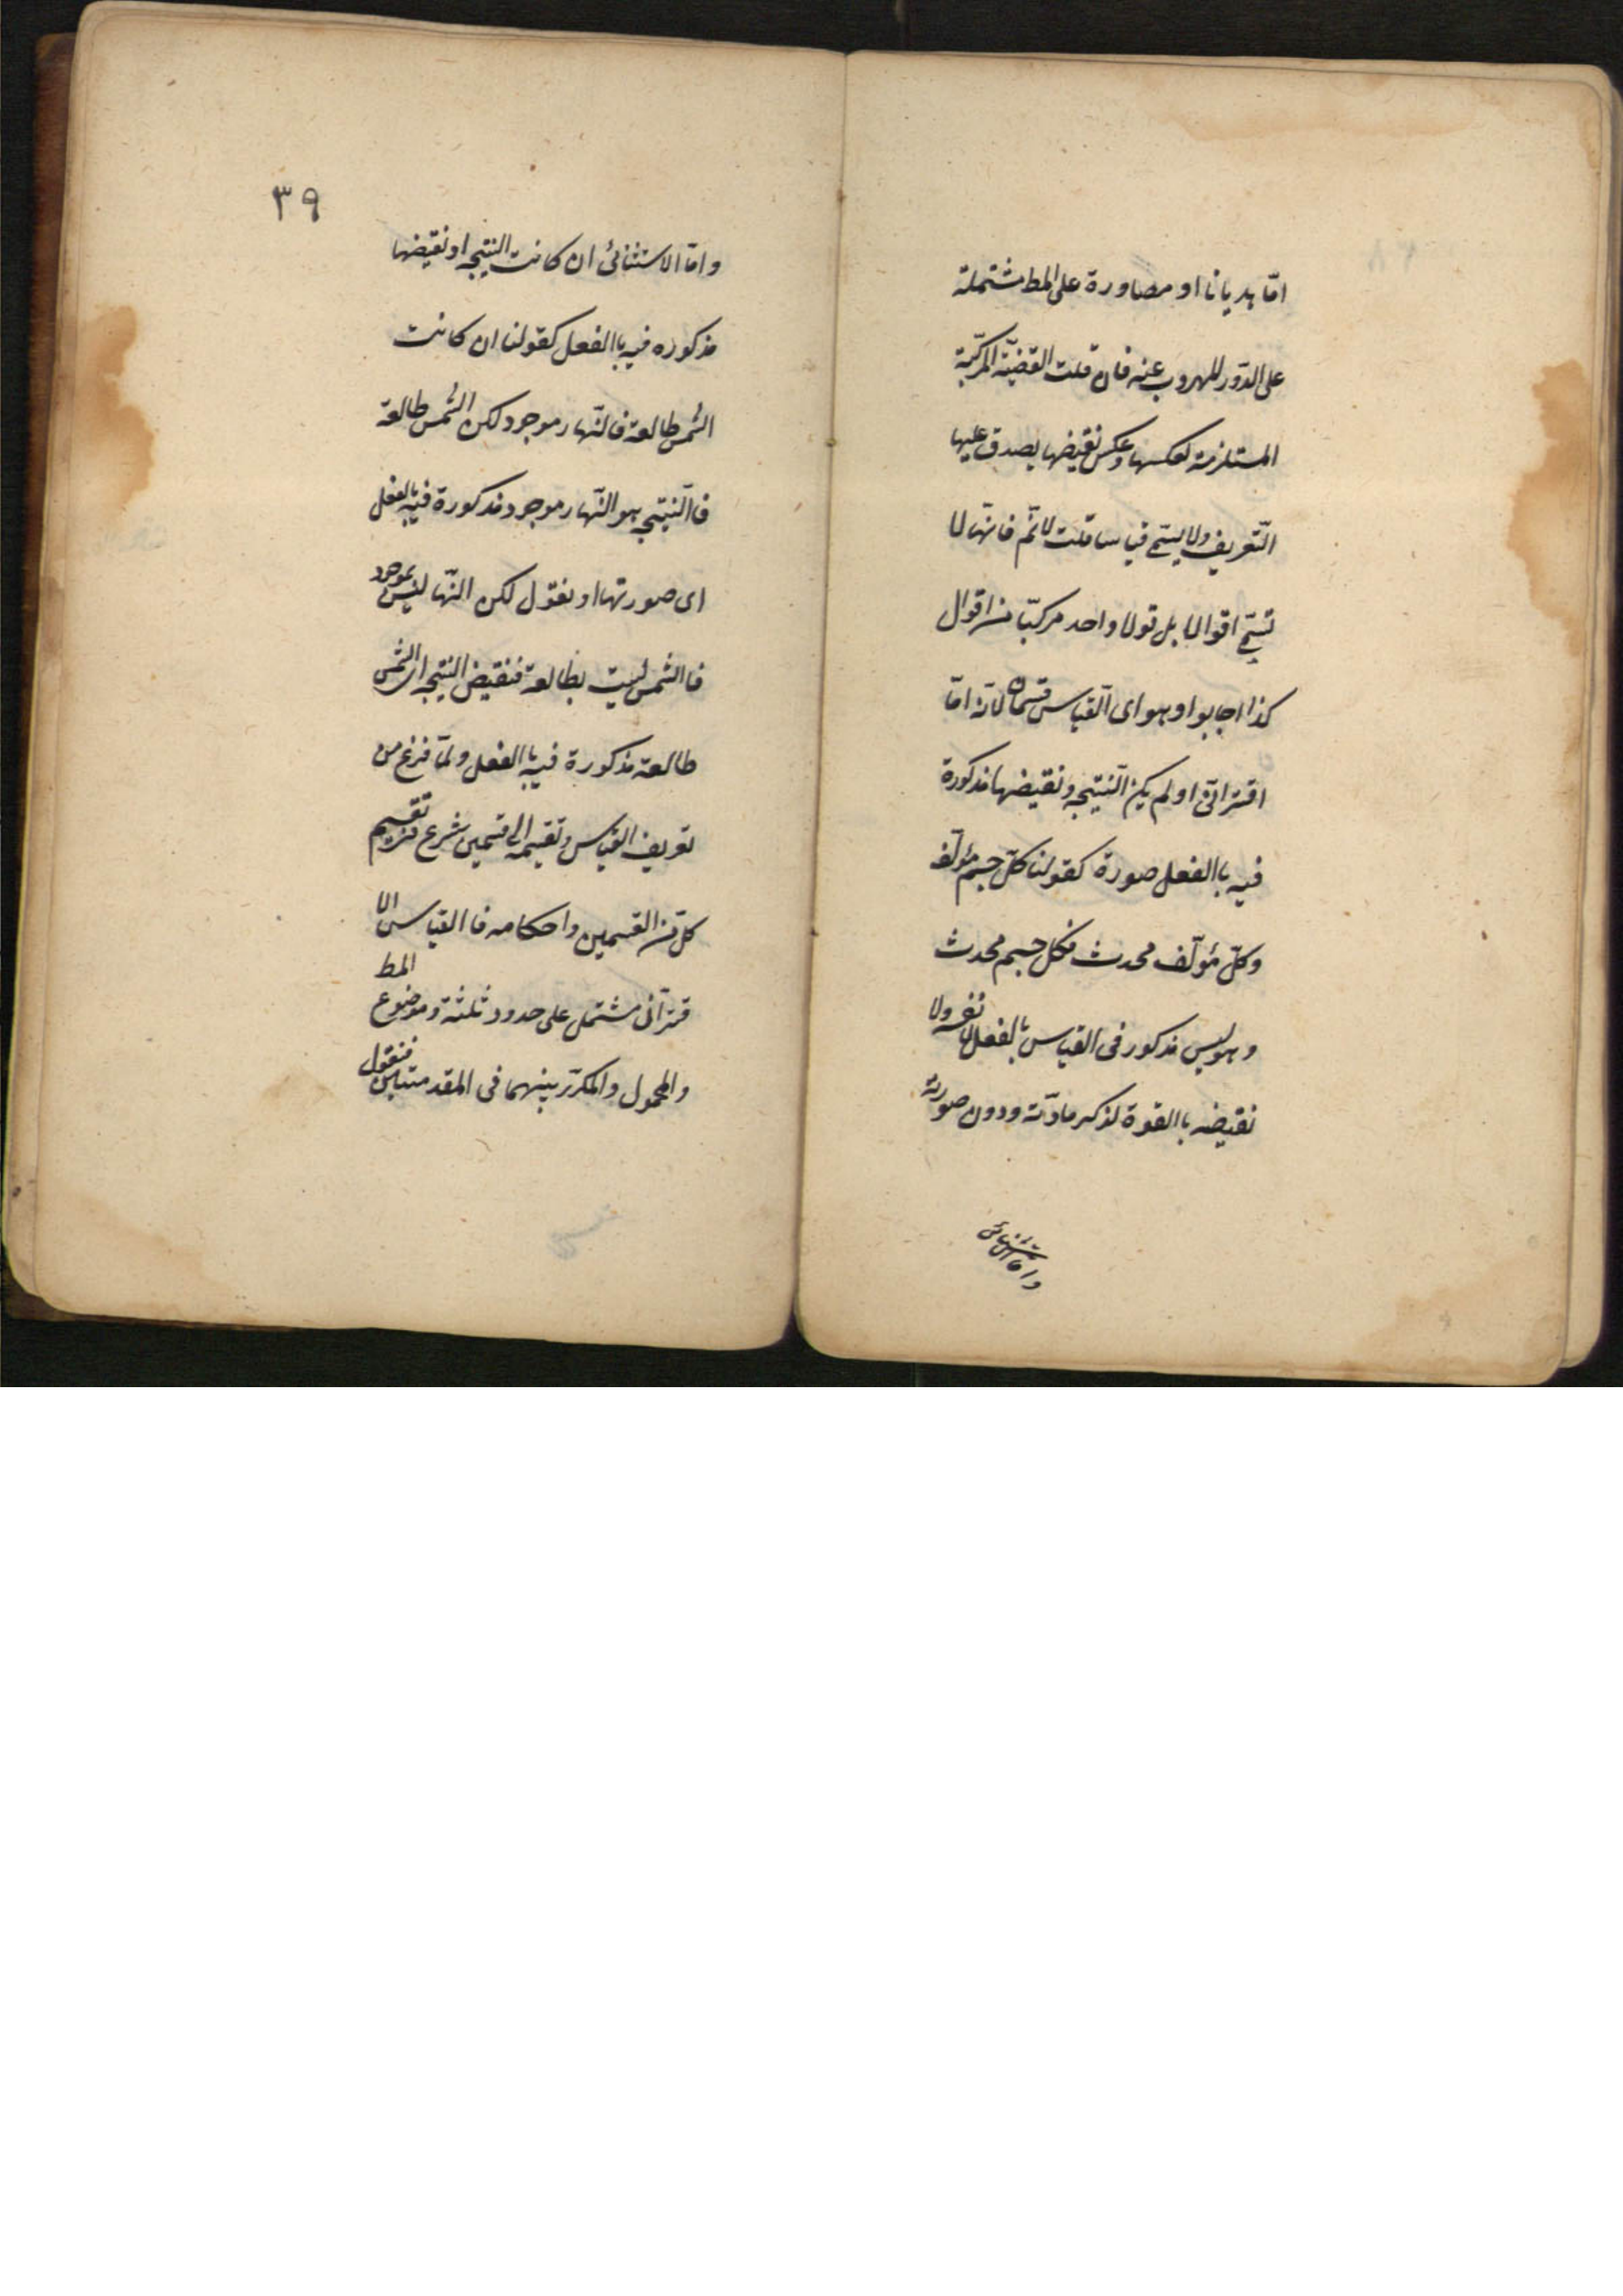 امّا هديانا او مصاورة على المط مشتملة
على الدّور للهروب عنه فان قلت القضيّة المركبّة
المستلزمة لعكسها وعكس نقيضها يصدق عليها
التّعريف ولا يسمّى قياسا قلت لا نمّ فانّها لا
تسمّى اقوالا بل قولا واحد مركبّا من اقوال
كذا اجابوا وهو اى القياس قسمان لانّه امّا
اقترانىّ او لم يكن النّتيجه ونقيضها مذكورة
فيه باالفعل صورة كقولنا كلّ جسم مؤلّف
وكلّ مؤلّف محدث فكل جسم محدث
وهو ليس مذكور فى القياس بالفعل لا نفسه ولا
نقيضه باالقوة لذكر مادّته ودون صورته
٣٩
وامّا الاستثنائى ان كانت النتيجه او نقيضها
مذكوره فيه باالفعل كقولنا ان كانت
الشمس طالعة فالنّهار موجود لكن الشمس طالعة
فاالنّتيجه هو النّهار موجود مذكورة فيه بالفعل
اى صورتها او نقول لكن النّها ليس بموجود
فاالشمس ليست بطالعة فنقيض النتيجه اى الشمس
طالعة مذكورة فيه باالفعل ولمّا فرغ من
تعريف القياس وتقسيمه الى قسمين شرع تقسيم
كلّ من القسمين واحكامه فاالقياس الا
قترانى مشتمل على حدود ثلثة وموضوع المط
والمحمول والمكرّر بينهما فى المقدمتين فنقول